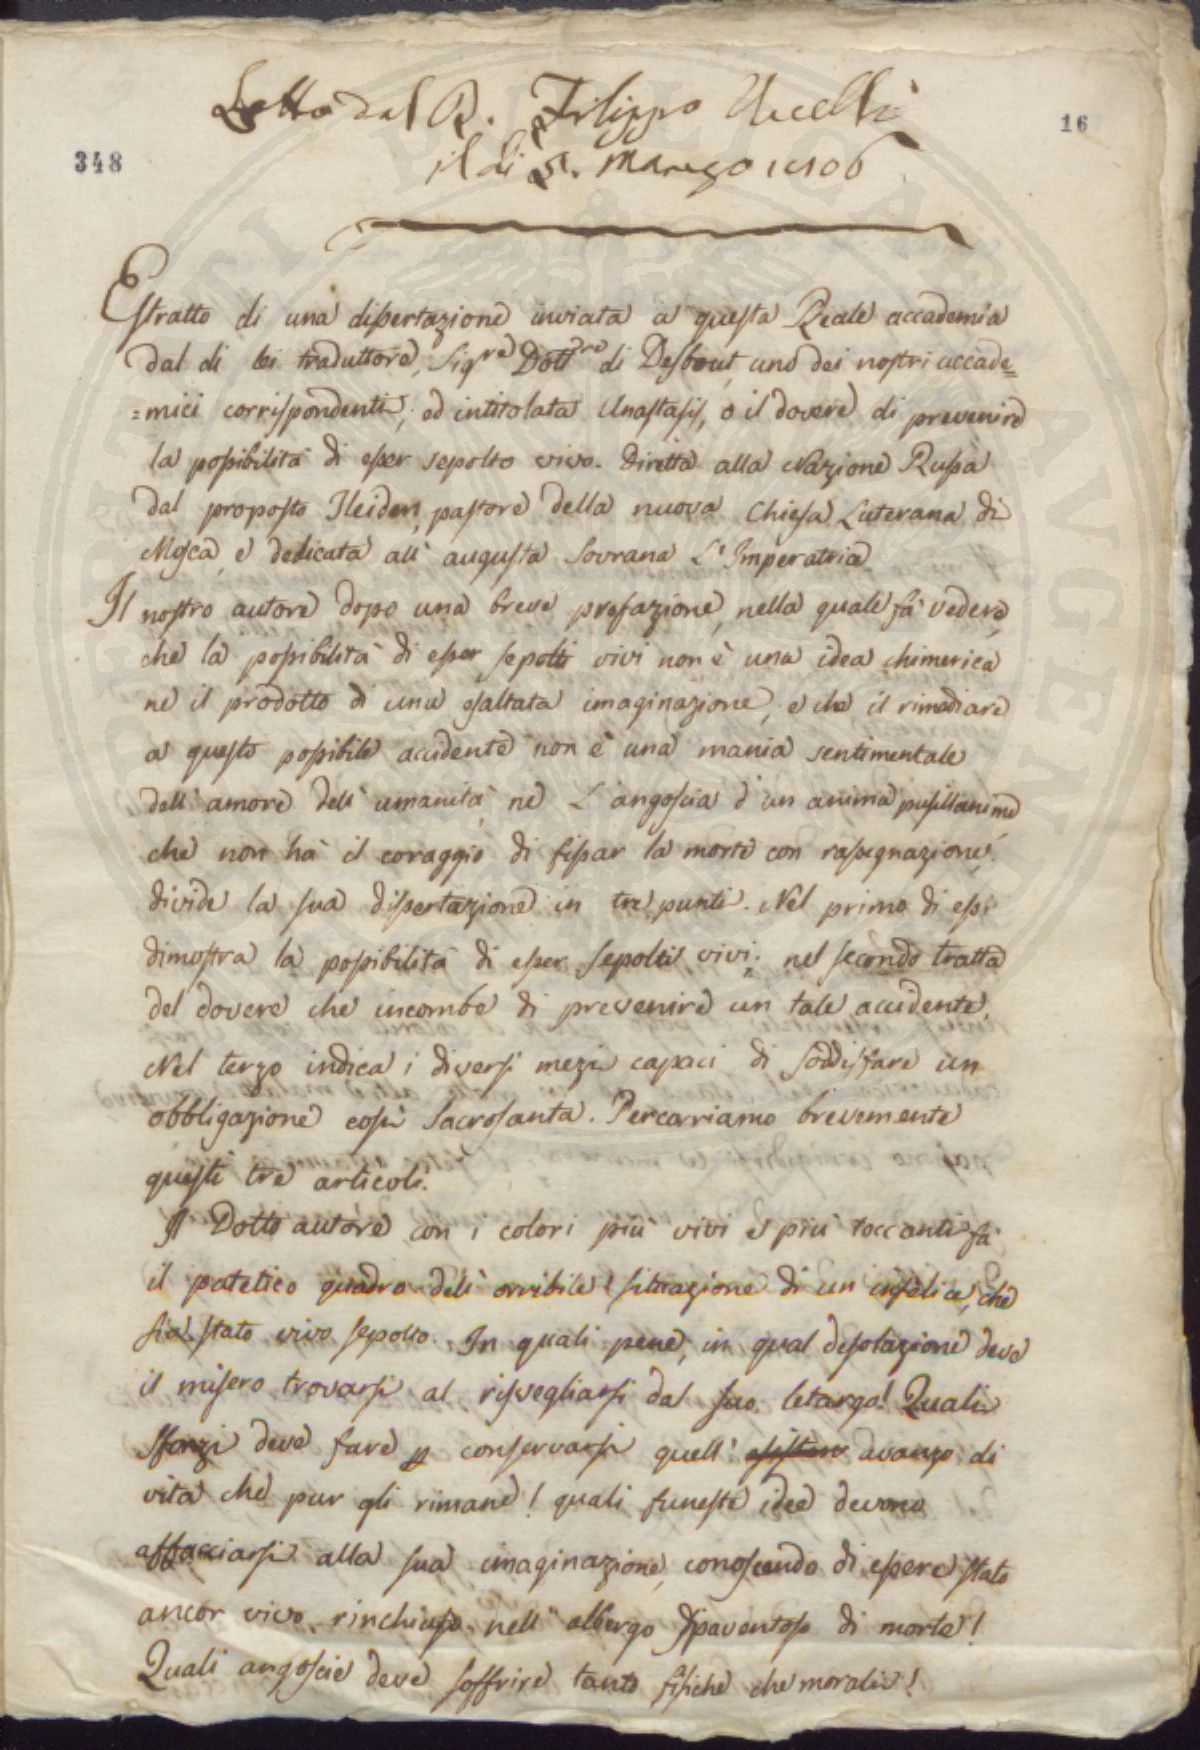 Letto dal D. Filippo Uccelli
16
il di 5. Marzo 1806
348
Estratto di una dissertazione inviata a questa Reale accademia
dal di lei traduttore, Sigre Dottre di Desbout, uno dei nostri accade=
=mici corrispondenti, ed intitolata Anastasis, o il dovere di prevenire
la possibilità di esser sepolto vivo. Diretta alla Nazione Russa
dal proposto Heiden, pastore della nuova Chiesa Luterana di
Mosca, e dedicata all' augusta Sovrana L'Imperatria
Il nostro autore dopo una breve prefazione, nella quale fà vedere,
che la possibilità di esser sepolti vivi non è una idea chimerica
ne il prodotto di una esaltata imaginazione, e che il rimediare
a questo possibile accidente non è una mania sentimentale
dell' amore dell' umanità, nè L'angoscia d'un anima pusillanime
che non hà il coraggio di fissar la morte con rassegnazione,
divide la sua dissertazione in tre punti. Nel primo di essi
dimostra la possibilità di esser sepolti vivi; nel secondo tratta
del dovere che incombe di prevenire un tale accidente.
Nel terzo indica i diversi mezi capaci di soddisfare un
obbligazione così sacrosanta. Percorriamo brevemente
questi tre articoli.
Il Dotto autore con i colori più vivi e più toccanti fà
il patetico quadro dell' orribile situazione di un infelice, che
sia stato vivo sepolto. In quali pene, in qual desolazione deve
il misero trovarsi al risvegliarsi dal suo letargo! Quali
sforzi deve fare p conservarsi quell' avanzo di
vita che pur gli rimane! quali funeste idee devono
affacciarsi alla sua imaginazione, conoscendo di essere stato
ancor vivo rinchiuso nell' albergo spaventoso di morte!
Quali angoscie deve soffrire tanto fisiche che morali!